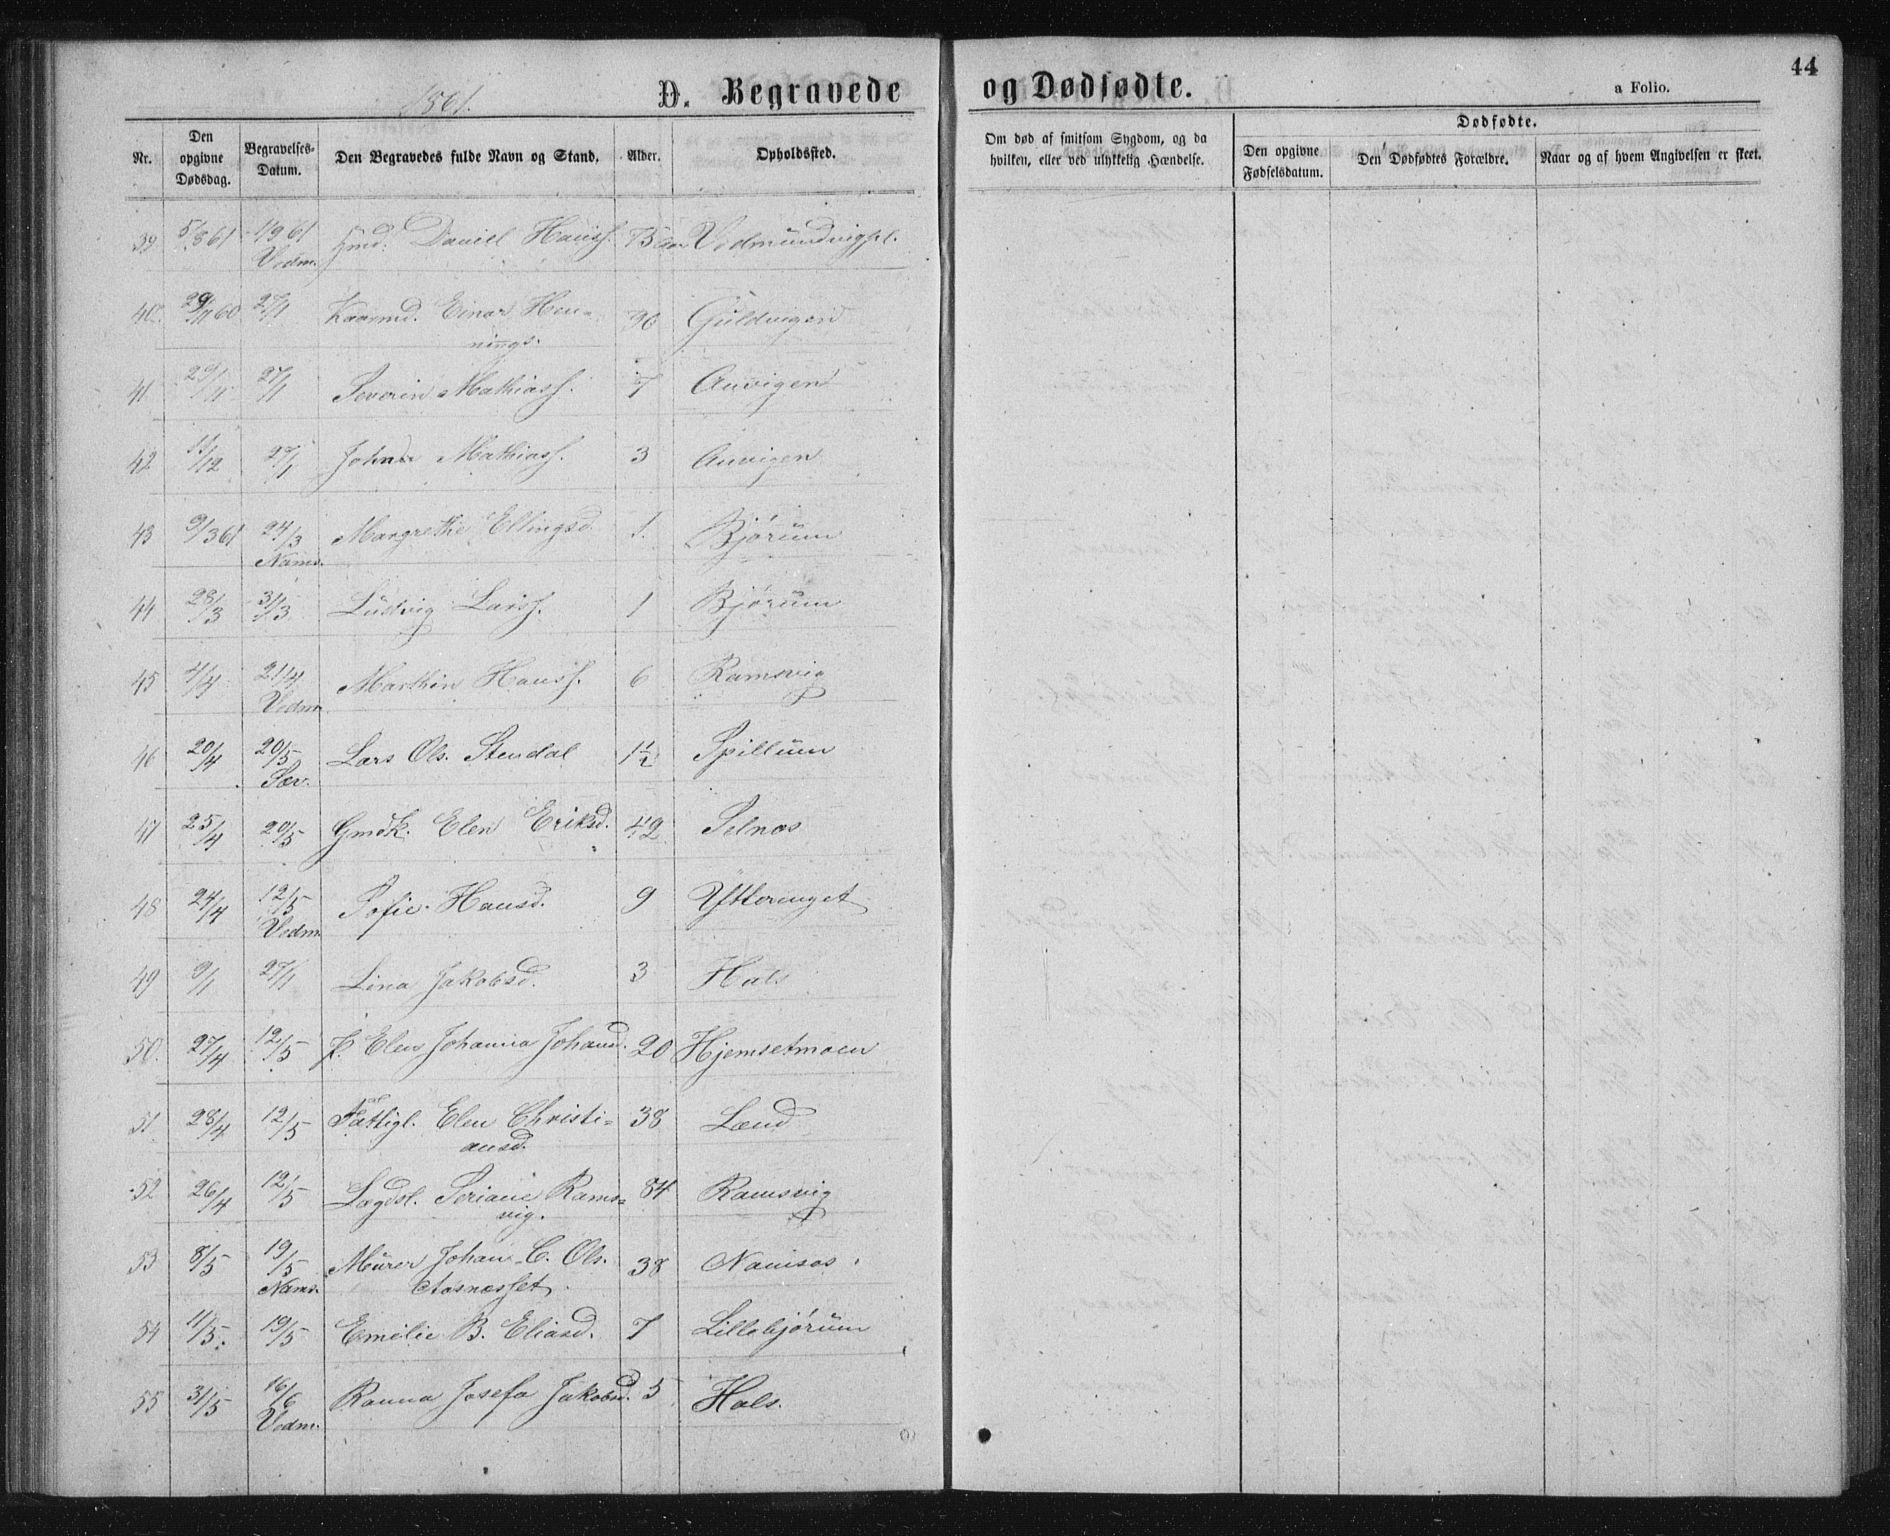 1861.
D. Begravede
og Dødfødte.
44
a Folio.
Nr.
Den opgivne Dødsdag.
Begravelses-Datum.
Den Begravedes fulde Navn og Stand.
Alder.
Opholdssted.
Om død af smitsom Sygdom, og da hvilken, eller ved ulykkelig Hændelse.
Dødfødte.
Den opgivne Fødselsdatum.
Den Dødfødtes Forældre.
Naar og af hvem Angivelsen er skeet.
39 Daniel Hanss.
Vedm.
40 29/11 60 27/1 Kaarmd. Einar Hen- 90 Guldvigen
nings.
41 29/11 27/1 Severin Mathiass. 7 Auvigen
42 27/1 Johan Mathiass. 3 Auvigen
43 9/3 61 24/3 Margrethe Ellingsd. 1. Bjørum
Nams.
44 28/3 31/3 Ludvig Larss. 1 Bjørum
45 4/4 21/4 Marthin Hanss. 6 Ramsvig
Vedm
46 20/4 20/5 Lars Ols. Stendal 1½ Spillum
Sær.
47 25/4 20/5 Gmdk. Elen Eriksd. 42 Selnæs
48 24/4 12/5 Sofie Hansd. 9 Ytterenget
Vedm.
49 9/1 27/1 Lina Jakobsd. 3 Hals
50. 27/4 12/5 P. Elen Johanna Johansd. 20 Hjemsetmoen
51 28/4 12/5 Fattigl. Elen Christi- 38 Lænd
ansd.
52 26/4 12/5 Lægdsl. Seriane Rams- 84 Ramsvig
vig.
53 8/5 19/5 Murer Johan C. Ols. 38 Namsos
Nams. Aasnæsset
54 11/5 19/5 Emilie B. Eliasd. 7 Lillebjørum
55 31/5 16/6 Ranna Josefa Jakobsd. 5 Hals.
Vedm.